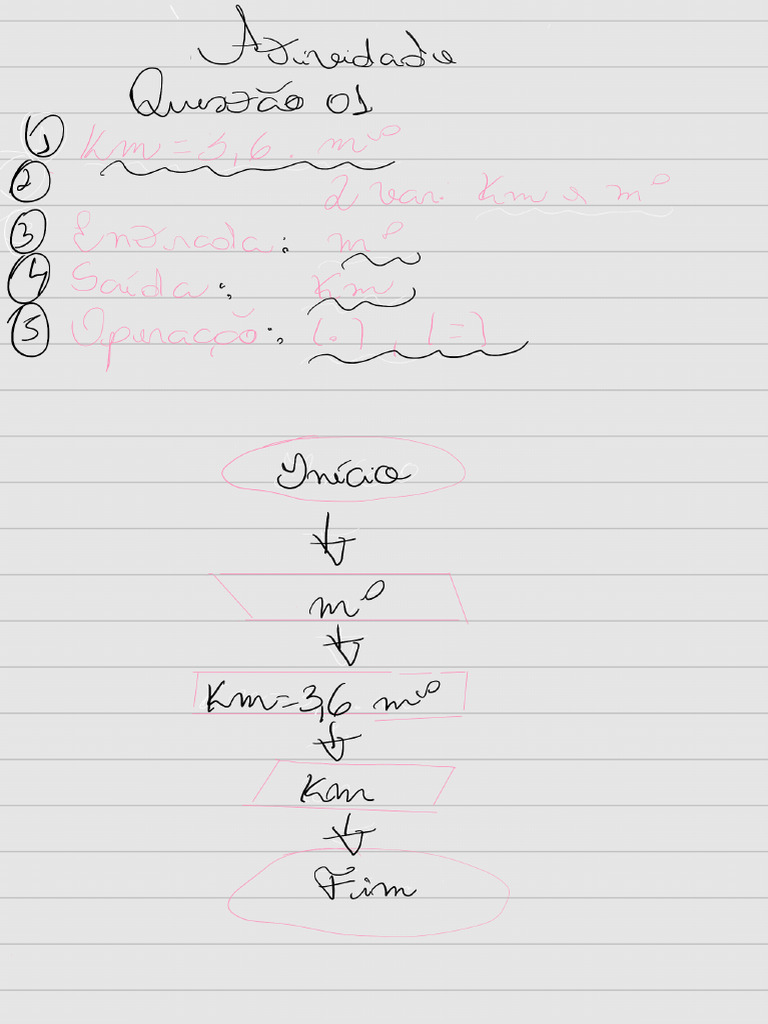 Atividade
Questão 01
1 Km = 3,6 . m°
2 2 var. Km e m°
3 Entrada: m°
4 Saída: Km
5 Operacção: (.), (=)
Início
m°
Km=3,6 m°
Km
Fim